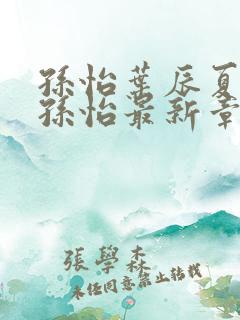 孫怡葉辰夏
孫怡最新章
張學森
未經同意禁止轉載